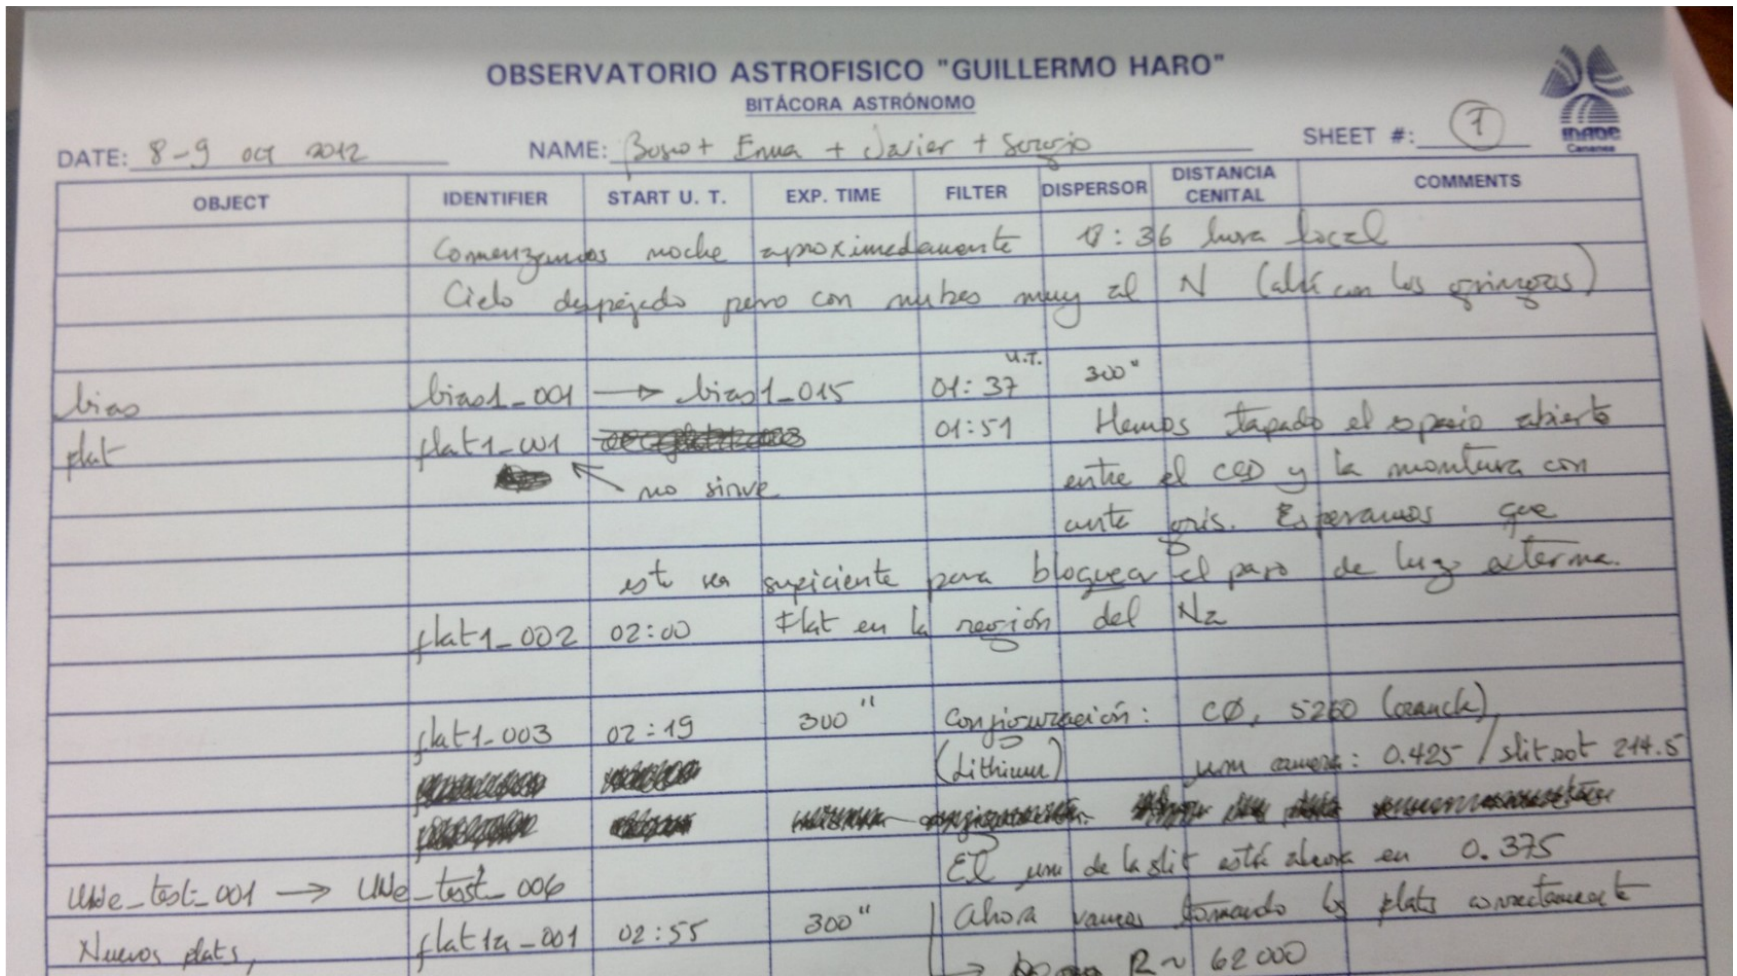 OBSERVATORIO ASTROFISICO "GUILLERMO HARO"
BITÁCORA ASTRÓNOMO
INAOE
Cananea
DATE: 8-9 oct 2012 NAME: Bosco + Enma + Javier + Sergio SHEET #: 1
OBJECT IDENTIFIER START U. T. EXP. TIME FILTER DISPERSOR DISTANCIA CENITAL COMMENTS
Comenzamos noche aproximadamente 18:36 hora local
Cielo despejado pero con nubes muy al N (allá con los gringos)
bias bias1_001 → bias1_015 01:37 U.T. 300"
flat flat1_001 01:51 Hemos tapado el espacio abierto
← no sirve entre el CCD y la montura con
ante gris. Esperamos que
esto sea suficiente para bloquear el paso de luz externa.
flat1_002 02:00 Flat en la región del Na
flat1_003 02:19 300" Configuración: CØ, 5260 (cranck),
(Lithium) μm camera: 0.425 / slit rot 214.5
El μm de la slit está ahora en 0.375
UNe_test_001 → UNe_test_006
Nuevos flats, flat1a_001 02:55 300" Ahora vamos tomando los flats correctamente
→ R~ 62000